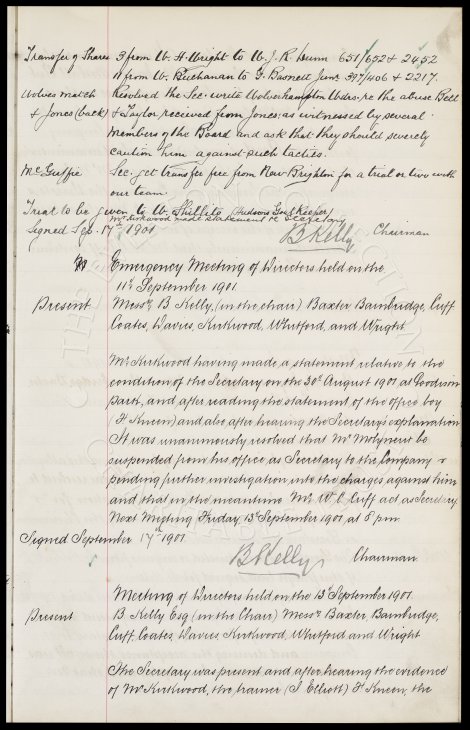 Transfer of Shares 3 from W. H. Wright to W. J. R. Dunn 651/652 & 2452
11 from W. Buchanan to G. Barnett Junr. 397/406 & 2217.
Wolves match Resolved the Sec. write Wolverhampton Wdrs. re the abuse Bell
& Jones (back) & Taylor received from Jones, as witnessed by several
members of the Board and ask that they should severely
caution him against such tactics.
McGuffie Sec. get transfer free from New Brighton for a trial or two with
our team
Trial to be given to W. Shillito (Hudsons Goal Keeper)
Mr Kirkwood made statement re Secretary
Signed Sep. 17th 1901 B Kelly Chairman
Emergency Meeting of Directors held on the
11th September 1901.
Present Messrs. B Kelly, (in the chair) Baxter Bainbridge, Cuff
Coates, Davies, Kirkwood, Whitford, and Wright
Mr Kirkwood having made a statement relative to the
condition of the Secretary on the 30th August 1901 at Goodison
Park, and after reading the statement of the office boy
(H Kneen) and also after hearing the Secretary's explanation
It was unanimously resolved that Mr Molyneux be
suspended from his office as Secretary to the Company
pending further investigation into the charges against him
and that in the meantime Mr W. C. Cuff act as Secretary
Next Meeting Friday 13th September 1901, at 8 pm.
Signed September 17th 1901
B Kelly Chairman
Meeting of Directors held on the 13 September 1901
Present B. Kelly Esq (in the Chair) Messrs. Baxter, Bainbridge,
Cuff, Coates, Davies, Kirkwood, Whitford and Wright
The Secretary was present and after hearing the evidence
of Mr Kirkwood, the trainer (J Elliott) H Kneen, the